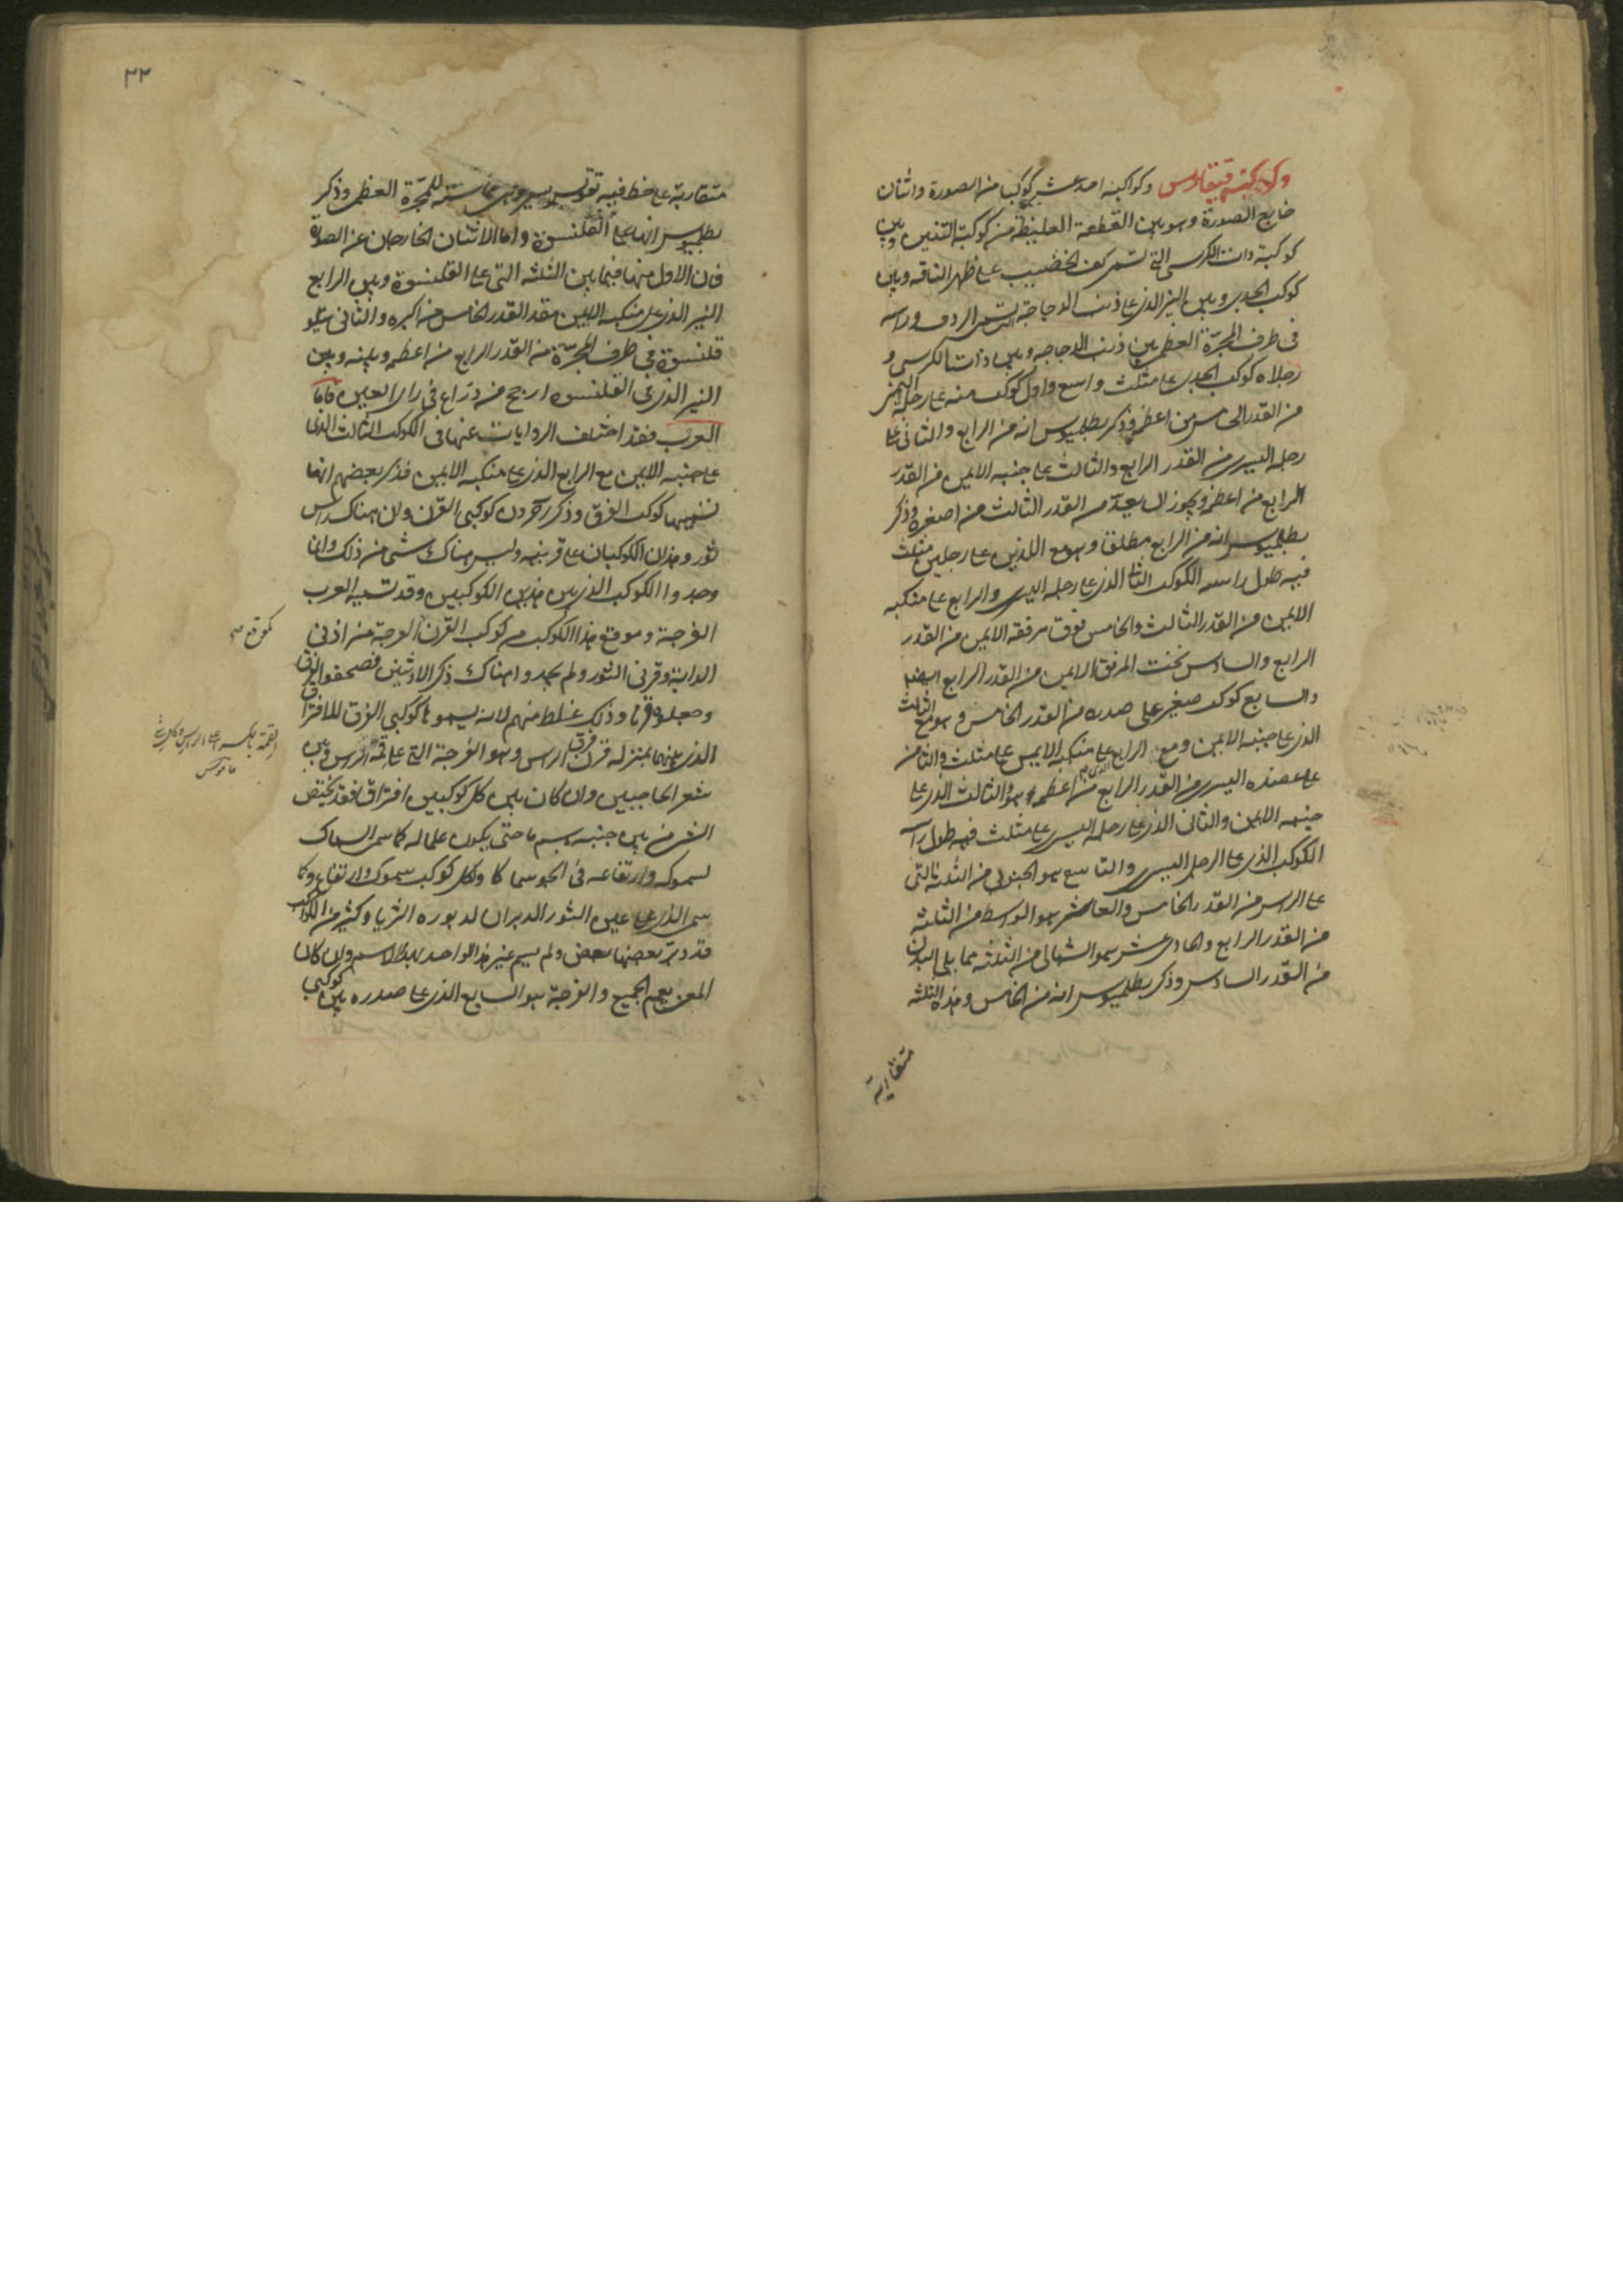 وكوكبة قيقاوس وكواكبه احد عشر كوكبا من الصورة واثنان
خارج الصورة وهو بين القطعة الغليظة من كوكبة التنين وبين
كوكبة ذات الكرسي التي تسمى كف الخضيب على ظهر الناقه وبين
كوكب الجدي وبين النير الذي على ذنب الدجاجة الردف وراسه
في طرف المجرّة العظمى بين ذنب الدجاجه وبين ذات الكرسي و
رجلاه كوكب الجدي على مثلث واسع واول كوكب منه على رجله اليمنى
من القدر الخامس من اعظمه وذكر بطلميوس انه من الرابع والثاني على
رجله اليسرى من القدر الرابع والثالث على جنبه الايمن من القدر
الرابع من اعظمه ويجوز ان يعد من القدر الثالث من اصغره وذكر
بطلميوس انه من الرابع مطلقا وهو مع اللذين على رجلين مثلث
فيه طول راسه الكوكب الذي على رجله اليسرى والرابع على منكبه
الايمن من القدر الثالث والخامس فوق مرفقه الايمن من القدر
الرابع والسادس تحت المرفق الايمن من القدر الرابع ايضا
والسابع كوكب صغير على صدره من القدر الخامس وهو مع الثالث
الذي على جنبه الايمن ومع الرابع على منكبه الايمن على مثلث والثامن
على عضده اليسرى من القدر الرابع من اعظمه وهو والثالث الذي على
جنبه الايمن والثاني الذي على رجله اليسرى على مثلث فيه طول راسه
الكوكب الذي على الرجل اليسرى والتاسع هو الجنوبي من الثلثة التي
على الراس من القدر الخامس والعاشر هو الواسط من الثلثة
من القدر الرابع والحادي عشر هو الشمالي من الثلثة مما يلي البدن
من القدر السادس وذكر بطلميوس انه من الخامس وهذه الثلثه
متقاربة
٣٢
متقاربة على خط فيه تقويس يسير وهي مماسته للمجرّة العظمى وذكر
بطلميوس انها على القلنسوة واما الاثنان الخارجان عن الصورة
فان الاول منها فيما بين الثلثه التي على القلنسوة وبين الرابع
النير الذي على منكبه الايمن من القدر الخامس من اكبره والثاني يتلو
قلنسوة في طرف المجرّة من القدر الرابع من اعظمه وبينه وبين
النير الذي على القلنسوه ارجح من ذراع في راى العين فاما
العرب فقد اختلف الروايات عنها في الكوكب الثالث الذي
على جنبه الايمن مع الرابع الذي على منكبه الايمن فذكر بعضهم انها
تسميها كوكب الفرق وذكر آخرون كوكبي القرن وان هناك راس
ثور وهذان الكوكبان على قرنيه وليس هناك شئ من ذلك وانما
وجدوا الكوكب الذي بين هذين الكوكبين وقد تسميه العرب
الفرجة وموقع هذا الكوكب من كوكب القرن الفرجة من اذني
الدابة وقرني الثور ولم يجدوا هناك ذكر الاذنين فصحفوا الفرق
وجعلوه قرنا وذلك غلط منهم لانه يسموها كوكبي الفرق للافتراق
الذي بينهما بمنزله فرق الراس وهو الفرجة التي على قمة الراس وبين
شعر الحاجبين وان كان بين كل كوكبين افتراق فقد يختص
الشئ من بين جنسه باسم ما حتى يكون علما له كما سمى السماك
لسموكه وارتفاعه في الجو سماكا ولكل كوكب سموك وارتفاع وكما
سمى الذي على عين الثور الدبران لدبوره الثريا وكثير من الكواكب
قد دبر بعضها بعض ولم يسم غير هذا الواحد بهذا الاسم وان كان
المعنى يعم الجميع والفرجة هو السابع الذي على صدره بين كوكبي